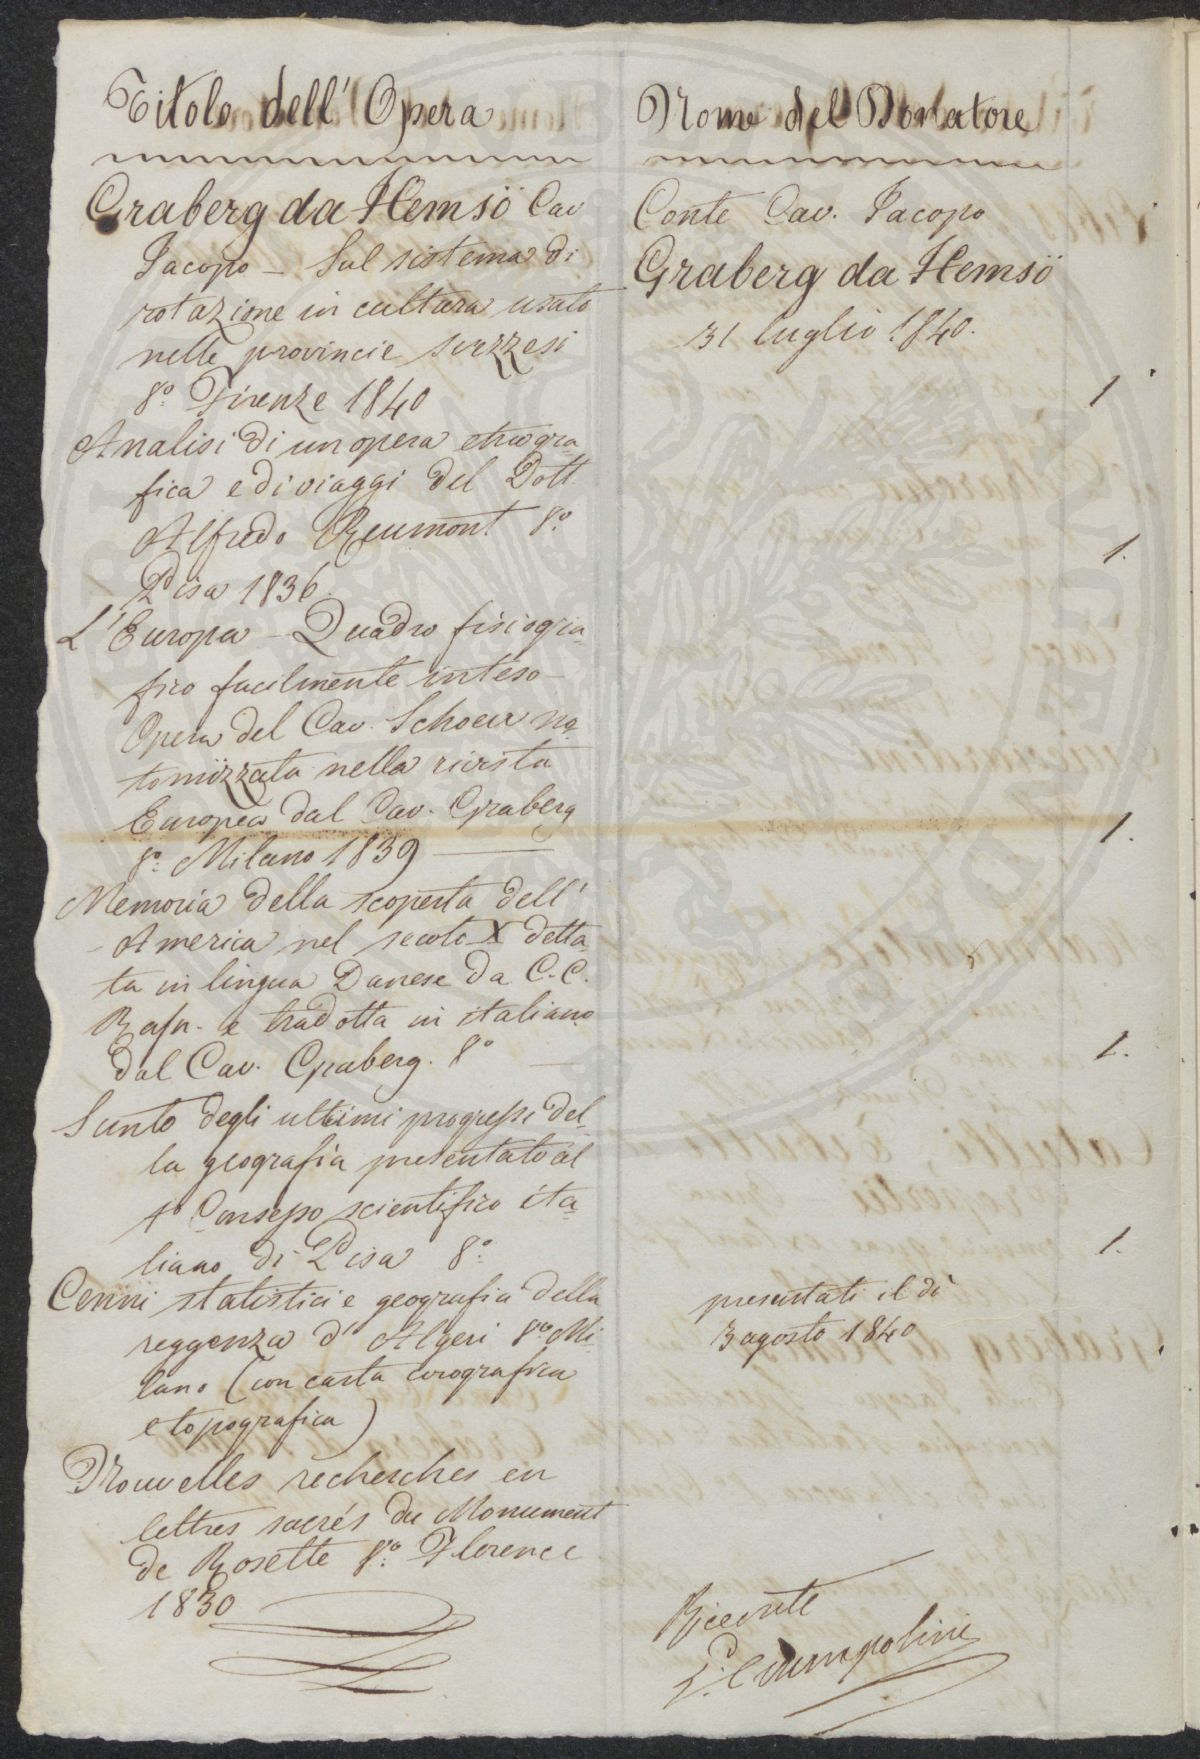 Titolo dell' Opera
Graberg da Hemsö Cav
Iacopo – Sul sistema di
rotazione in cultura usato
nelle provincie svezzesi
8º Firenze 1840
Analisi di un opera etnogra
fica e di viaggi del Dott
Alfredo Reumont 8º
Pisa 1836.
L'Europa – Quadro fisiogra-
fico facilmente inteso –
Opera del Cav. Schouw no-
tomizzata nella rivista
Europea dal Cav. Graberg
8º Milano 1839
Memoria della scoperta dell'
America nel secolo X detta-
ta in lingua Danese da C. C.
Rafn. e tradotta in italiano
dal Cav. Graberg. 8º
Sunto degli ultimi progressi del-
la geografia presentato al
1º Consesso scientifico ita-
liano di Pisa 8º
Cenni statistici e geografia della
reggenza d' Algeri 8º Mi
lano (con carta corografica
e topografica)
Nouvelles recherches en
lettres sacrés du Monument
de Rosette 8º Florence
1830
Nome del Donatore
Conte Cav. Iacopo
Graberg da Hemsö
31 luglio 1840.
1
1.
1.
1.
1.
presentati il dì
3 agosto 1840
Ricevute
P. Ciampolini